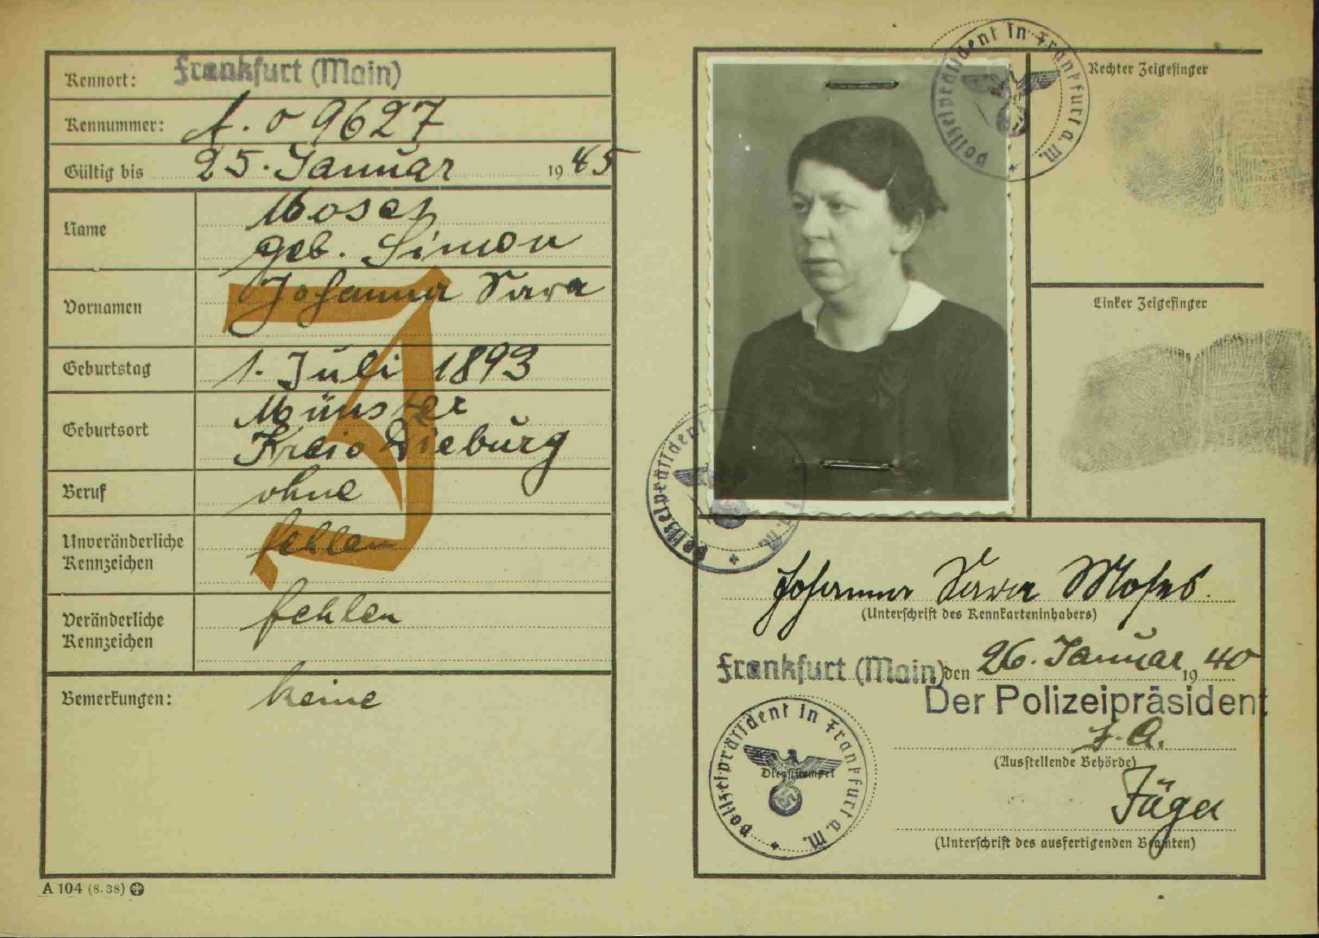 Kennort: Frankfurt (Main)
Kennummer: A. 0 9627
Gültig bis 25. Januar 1945
Name
Moses
geb. Simon
Vornamen
Johanna Sara
Geburtstag
1. Juli 1893
Geburtsort
Münster
Kreis Dieburg
Beruf
ohne
Unveränderliche
Kennzeichen
fehlen
Veränderliche
Kennzeichen
fehlen
Bemerkungen: keine
J
A 104 (8. 38)
Rechter Zeigefinger
Linker Zeigefinger
Polizeipräsident in Frankfurt a. M.
Polizeipräsident a. M.
Johanna Sara Moses.
(Unterschrift des Kennkarteninhabers)
Frankfurt (Main) den 26. Januar 1940
Der Polizeipräsident
J. A.
(Ausstellende Behörde)
Jäger
(Unterschrift des ausfertigenden Beamten)
Polizeipräsident in Frankfurt a. M.
Dienststempel